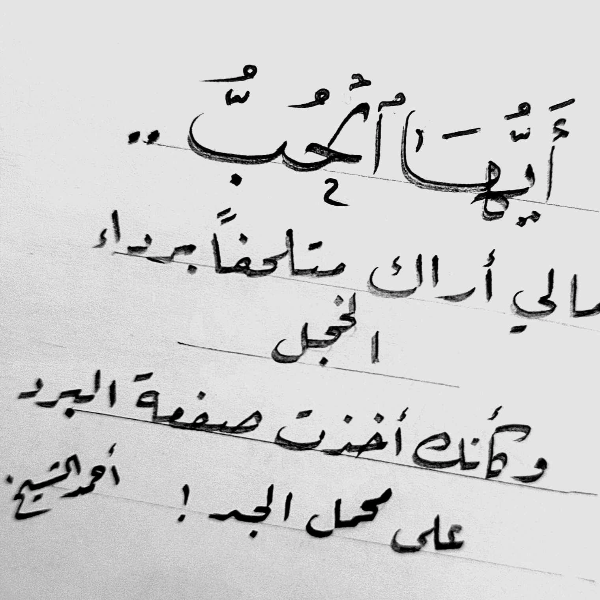 أَيُّهَا ٱلْحُبُّ ..
مالي أراك متلحفاً برداء
الخجل
وكأنك أخذت صفعة البرد
على محمل الجد !
أحمد الشيخ